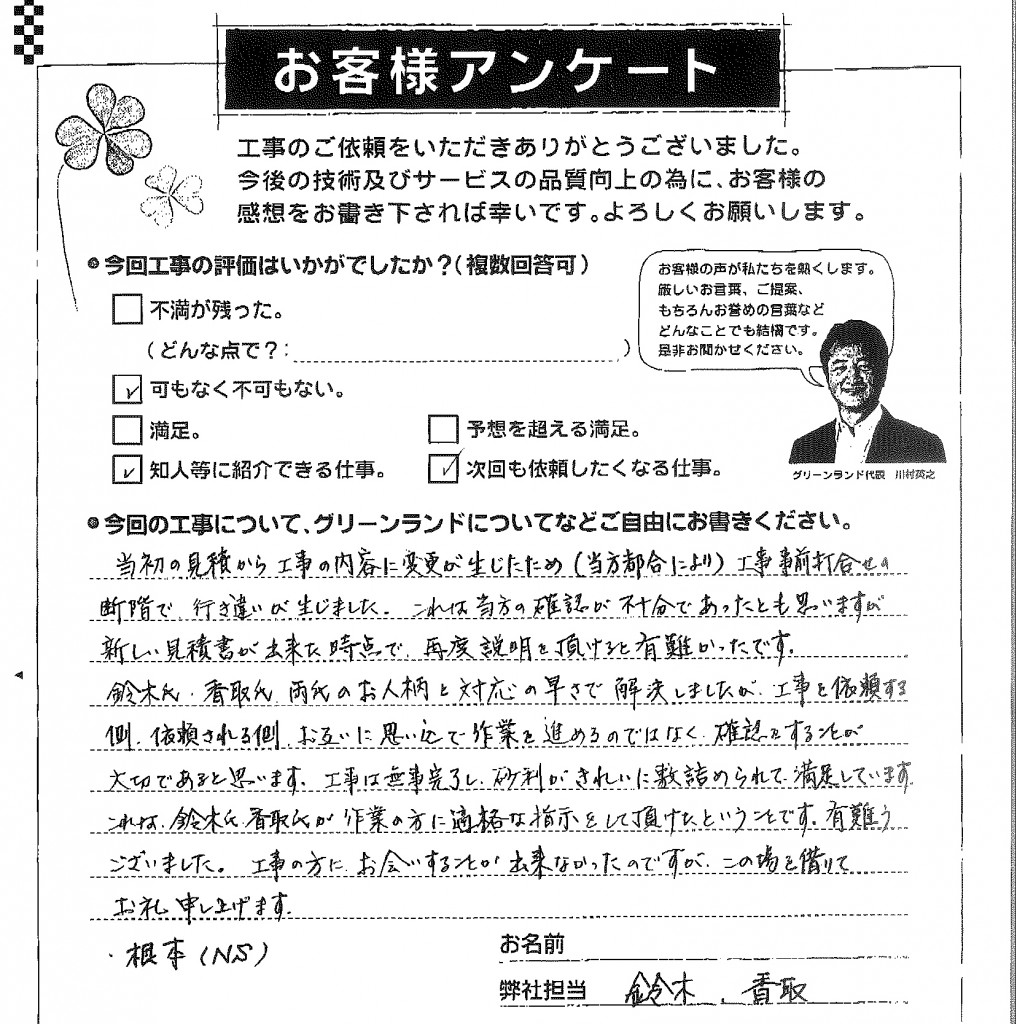 お客様アンケート
工事のご依頼をいただきありがとうございました。
今後の技術及びサービスの品質向上の為に、お客様の
感想をお書き下されば幸いです。よろしくお願いします。
●今回工事の評価はいかがでしたか?(複数回答可)
お客様の声が私たちを熱くします。
厳しいお言葉、ご提案、
もちろんお誉めの言葉など
どんなことでも結構です。
是非お聞かせください。
不満が残った。
(どんな点で?: )
✓ 可もなく不可もない。
満足。
予想を超える満足。
✓ 知人等に紹介できる仕事。
✓ 次回も依頼したくなる仕事。
グリーンランド代表 川村英之
●今回の工事について、グリーンランドについてなどご自由にお書きください。
当初の見積から工事の内容に変更が生じたため(当方都合により)工事事前打合せの
断階で、行き違いが生じました。これは当方の確認が不十分であったとも思いますが
新しい見積書が出来た時点で、再度説明を頂けると有難かったです。
鈴木氏、香取氏、両氏のお人柄と対応の早さで解決しましたが、工事を依頼する
側、依頼される側、お互いに思い込で作業を進めるのではなく、確認をすることが
大切であると思います。工事は無事完了し、砂利がきれいに敷詰められて、満足しています。
これは、鈴木氏、香取氏が作業の方に適格な指示をして頂けたということです。有難う
ございました。工事の方に、お会いすることが出来なかったのですが、この場を借りて
お礼申し上げます。
・根本(NS)
お名前
弊社担当 鈴木、香取